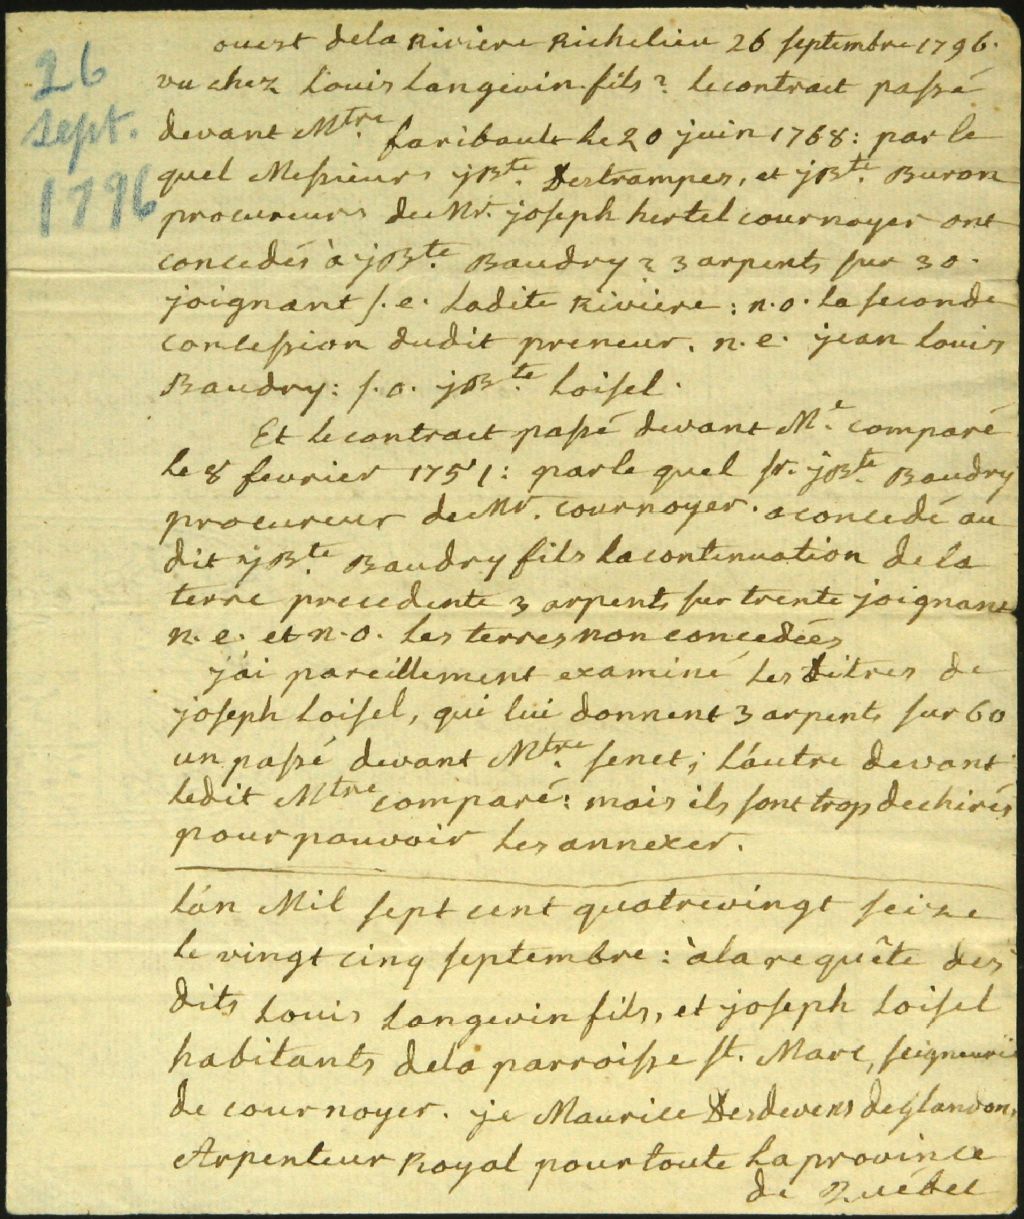 26
Sept.
1796
ouest dela Riviere Richelieu 26 septembre 1796.
vu chez Louis Langevin fils? le contract passé
devant Mtre faribault le 20 juin 1768: par le
quel Messieurs jBte. Destrampes, et jBte. Buron
procureurs de Mr. joseph hertel cournoyer ont
concedés à jBte. Baudry? 3 arpents sur 30.
joignant s.e. ladite Riviere: n.o. la seconde
concession dudit preneur. n.e. jean Louis
Baudry: s.o. jBte Loisel.
Et le contract passé devant Me. comparé
le 8 fevrier 1751: par le quel sr. jBte. Baudry
procureur de Mr. cournoyer. a concedé au
dit jBte. Baudry fils la continuation de la
terre precedente 3 arpents sur trente joignant
n.e. et n.o. les terres non concedées
j'ai pareillement examiné les titres de
joseph Loisel, qui lui donnent 3 arpents sur 60
un passé devant Mtre. senet; l'autre devant
ledit Mtre comparé: mais ils sont trop dechirés
pour pouvoir les annexer.
L'an Mil sept cent quatrevingt seize
le vingt cinq septembre: à la requête des
dits Louis Langevin fils, et joseph Loisel
habitants dela parroisse st. Marc, seigneurie
de cournoyer. je Maurice Desdevens de Glandons
Arpenteur Royal pour toute la province
de Quebec